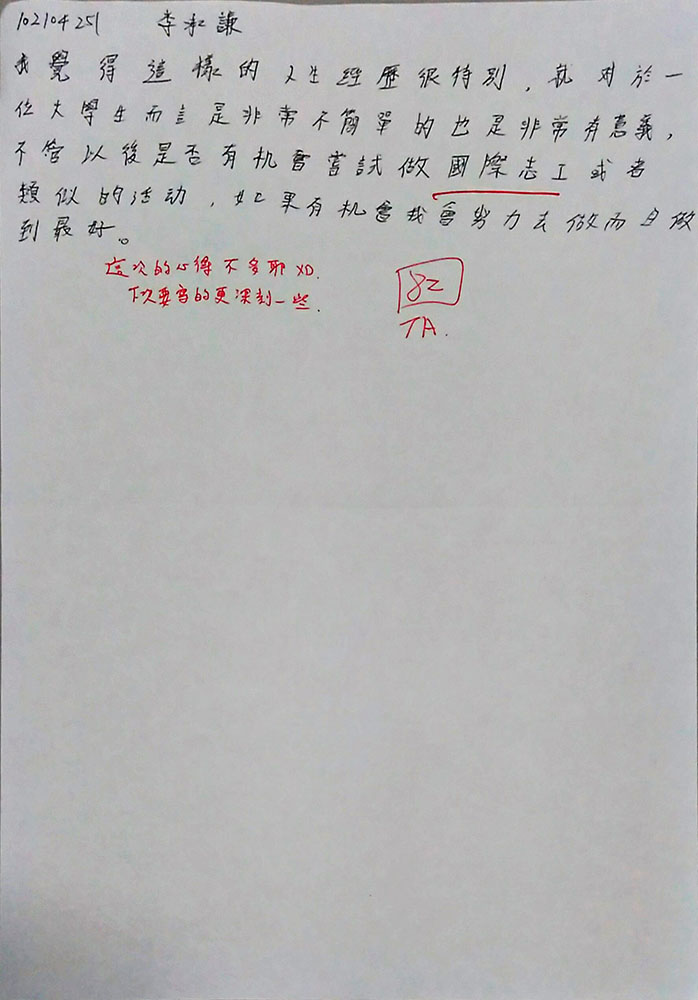 102104251 李和謙
我覺得這樣的人生經歷很特別，就对於一
位大學生而言是非常不簡單的也是非常有意義，
不管以後是否有机會嘗試做國際志工或者
類似的活动，如果有机會我會努力去做而且做
到最好。
這次的心得不多耶XD.
下次要寫的更深刻一些.
82
TA.